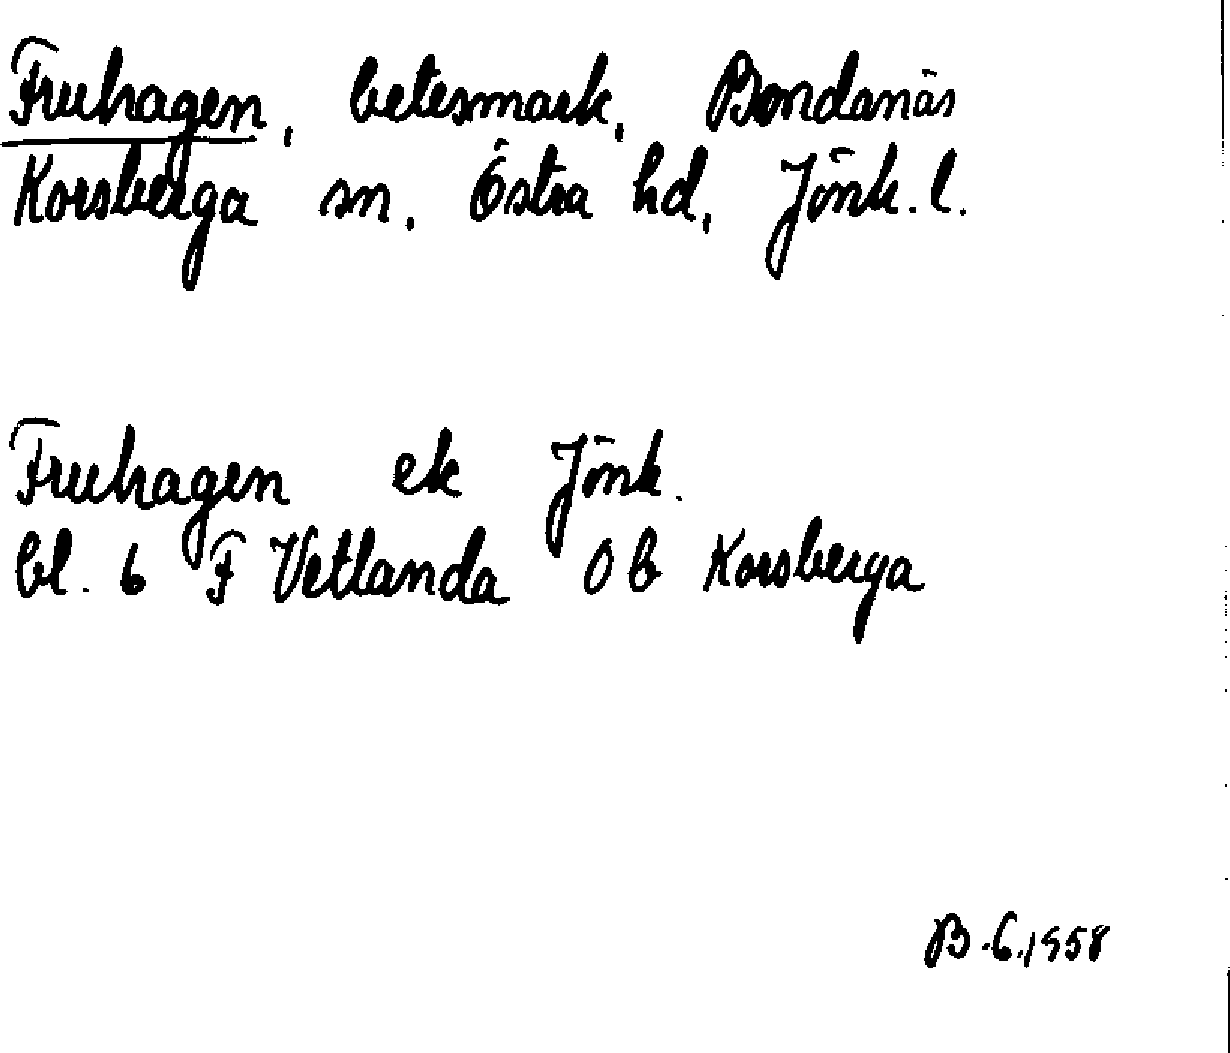 Fruhagen, betesmark, Bondanäs
Korsberga sn, Östra hd, Jönk. l.
Fruhagen ek Jönk.
bl. 6 F Vetlanda OB Korsberga
B.6.1958